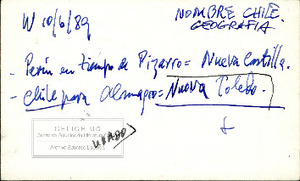 W 10/6/89
NOMBRE CHILE.
GEOGRAFIA
- Perú en tiempo de Pizarro = Nueva Castilla.
- Chile para Almagro = Nueva Toledo.
CELICH UC
USADO